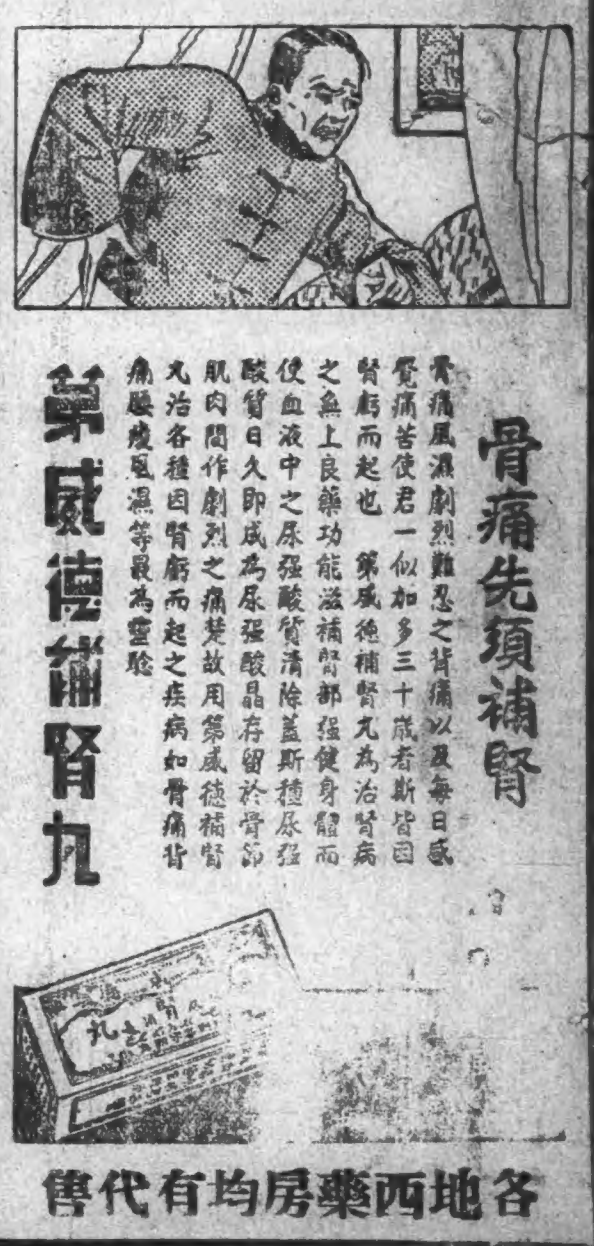 骨痛先須補腎
骨痛風濕劇烈難忍之背痛以及每日感
覺痛苦使君一似加多三十歲者斯皆因
腎虧而起也　第威德補腎丸為治腎病
之無上良藥功能滋補腎部强健身體而
使血液中之尿强酸質清除蓋斯種尿强
酸質日久即成為尿强酸晶存留於骨節
肌肉間作劇烈之痛楚故用第威德補腎
丸治各種因腎虧而起之疾病如骨痛背
痛腰痠風濕等最為靈騐
第威德補腎丸
各地西藥房均有代售